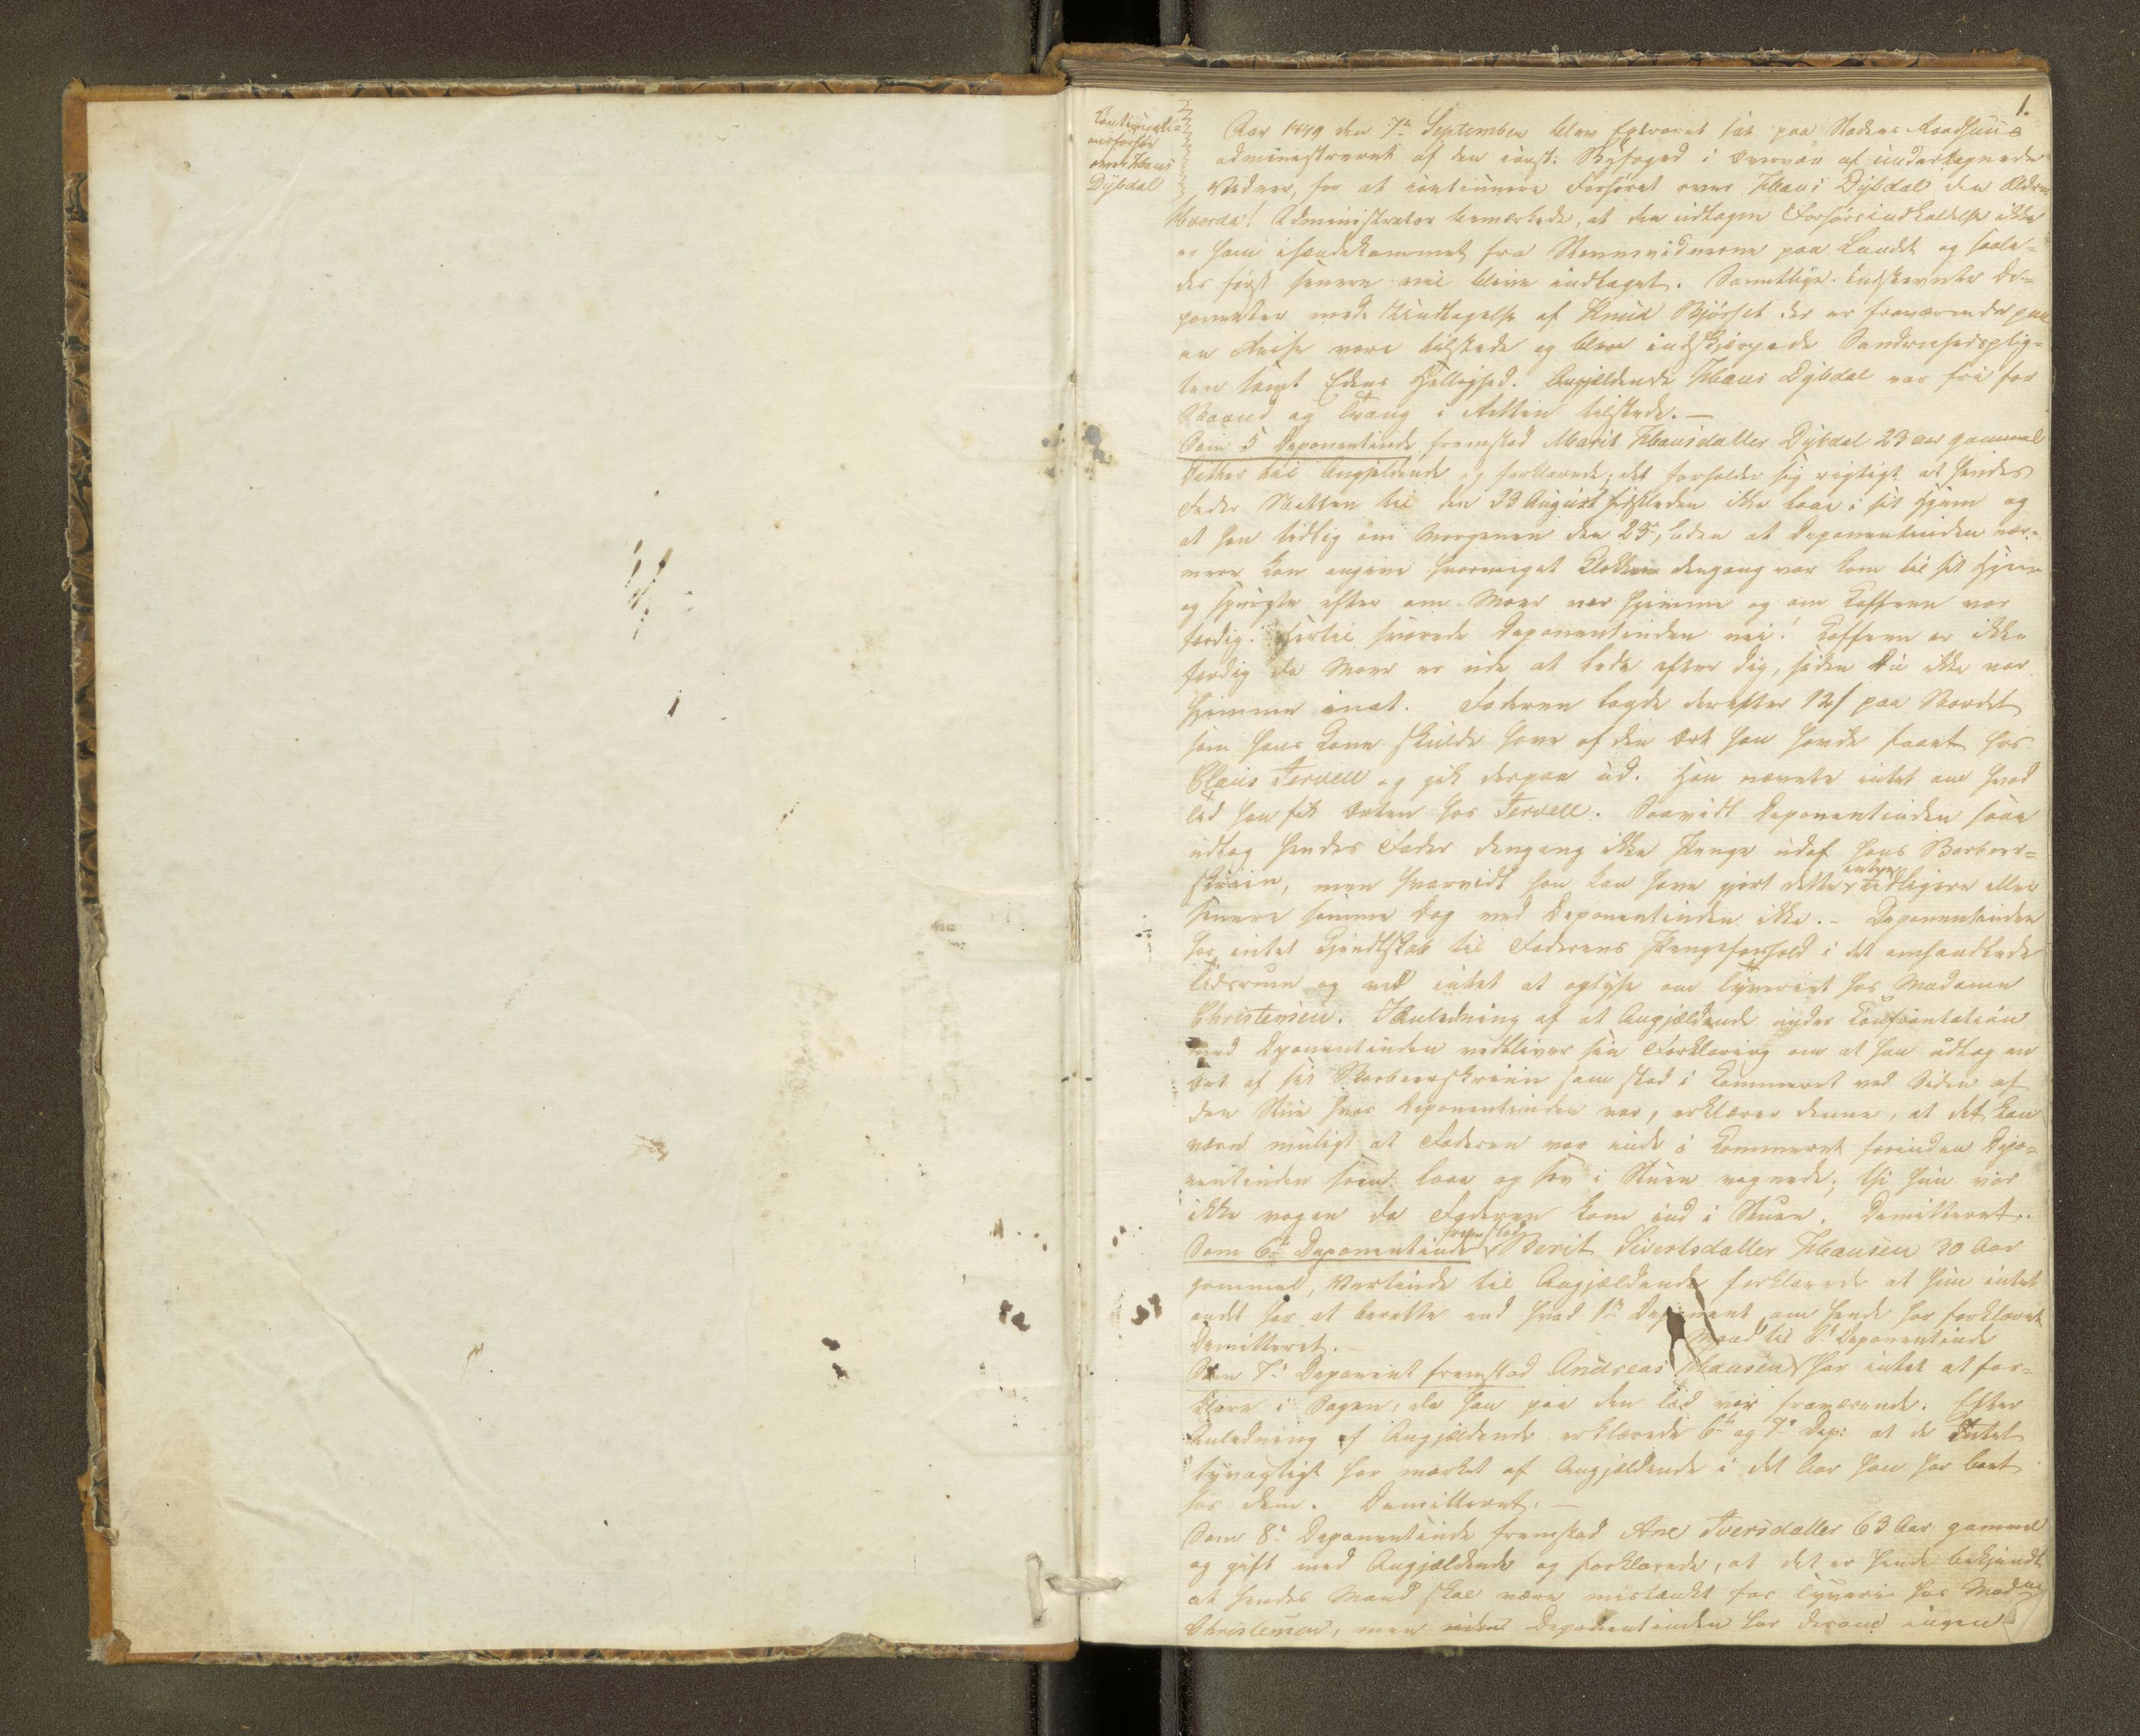 1.
Continuati-
onsforhør
over Claus
Dybdal
Aar 1849 den 7de September blev Extraret sat paa Stadens Raadhuus
administreret af den const: Byfoged i Overvær af undertegnede
Vidner, for at continuere Forhøret over Claus Dybdal den Ældre,
Hvorda! Administrator bemærkede, at den udtagne Forhørsindkaldelse ikke
er ham ihændekommet fra Stevnevidnerne paa Landet og saale-
des først senere vil blive indtaget. Samtlige indstevnte De-
ponenter med Undtagelse af Knud Bjørset der er fraværende paa
en Reise vare tilstede og blev indskjærpede Sandruhedsplig-
ten samt Edens Hellighed. Angjældende Claus Dybdal var fri for
Baand og Tvang i Retten tilstede. —
Som 5 Deponentinde fremstod Marit Clausdatter Dybdal 23 aar gammel
Datter til Angjeldende og forklarede; det forholder sig rigtigt at hendes
Fader Natten til den 23 August sidstleden ikke laae i sit Hjem og
at han tidlig om Morgenen den 23de, uden at Deponentinden nær-
mere kan angive hvormeget Klokken dengang var kom til sit Hjem
og spurgte efter om Moer var hjemme og om Caffeen var
færdig. Hertil svarede Deponentinden nei! Caffeen er ikke
færdig da Moer er ude at lede efter dig, siden Du ikke var
hjemme inat. Faderen lagde derefter 12 s paa Bordet
som hans Kone skulde have af den Ort han havde faaet hos
Claus Tervell og gik derpaa ud. Han nævnte intet om hvad
Tid han fik Orten hos Tervell. Saavidt Deponentinden saae
udtog hendes Fader dengang ikke Penge udaf hans Barbeer-
skriin, men hvorvidt han kan have gjort dette enten tidligere eller
senere samme Dag ved Deponentinden ikke. - Deponentinden
har intet Kjendskab til Faderens Pengeforhold i det omhandlede
Tidsrum og ved intet at oplyse om Tyveriet hos Madame
Christensen. I Anledning af at Angjældende under Confrontation
med Deponentinden vedbliver sin Forklaring om at han udtog en
Ort af sit Barbeerskriin som stod i Kammeret ved Siden af
den Stue hvor Deponentinden var, erklærer denne, at det kan
være muligt at Faderen var inde i Kammeret forinden Depo-
nentinden som laae og sov i Stuen vaagnede; thi hun var
ikke vaagen da Faderen kom ind i Stuen. Demitteret.
Som 6te Deponentinde fremstod Berit Sivertsdatter Clausen 30 Aar
gammel, Vertinde til Angjældende forklarede at hun intet
andet har at berette end hvad 1ste Deponent om hende har forklaret
Demitteret. —
Som 7de Deponent fremstod Andreas Clausen Mand til 6te Deponentinde har intet at for-
klare i Sagen, da han paa den Tid var fraværende. Efter
Anledning af Angjældende erklærede 6te og 7de Dep: at de Intet
tyvagtigt har mærket af Angjældende i det Aar han har boet
hos dem. Demitteret. —
Som 8de Deponentinde fremstod Ane Iversdatter 63 Aar gammel
og gift med Angjældende og forklarede, at det er hende bekjendt
at hendes Mand skal være mistænkt for Tyveri hos Madme
Christensen, men Deponentinden har derom ingen